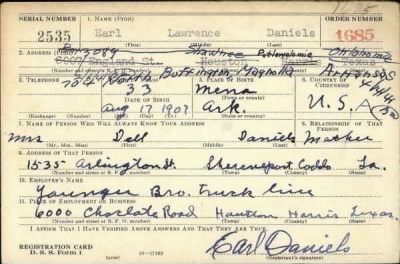 SERIAL NUMBER 1. NAME (Print) ORDER NUMBER
2535 Earl Lawrence Daniels 1685
(First) (Middle) (Last)
2. ADDRESS (Print)
Bx 3089 Oklahoma
6007 England St. Houston Harris Texas
(Number and street or R. F. D. number) (Town) (County) (State)
North Magnolia Arkansas
3. TELEPHONE 4. AGE IN YEARS 5. PLACE OF BIRTH 6. COUNTRY OF CITIZENSHIP
33 Mena
DATE OF BIRTH (Town or county)
Aug 17 1907 Ark. U.S.A
(Exchange) (Number) (Mo.) (Day) (Yr.) (State or country)
7. NAME OF PERSON WHO WILL ALWAYS KNOW YOUR ADDRESS 8. RELATIONSHIP OF THAT PERSON
Mrs Dell Daniels Mother
(Mr., Mrs., Miss) (First) (Middle) (Last)
9. ADDRESS OF THAT PERSON
1535 Arlington St. Shreveport Caddo La.
(Number and street or R. F. D. number) (Town) (County) (State)
10. EMPLOYER'S NAME
Younger Bro. Truck Line
11. PLACE OF EMPLOYMENT OR BUSINESS
6000 Choclate Road Houston Harris Texas.
(Number and street or R. F. D. number) (Town) (County) (State)
I AFFIRM THAT I HAVE VERIFIED ABOVE ANSWERS AND THAT THEY ARE TRUE.
REGISTRATION CARD
D. S. S. Form 1 Earl Daniels
(Registrant's signature)